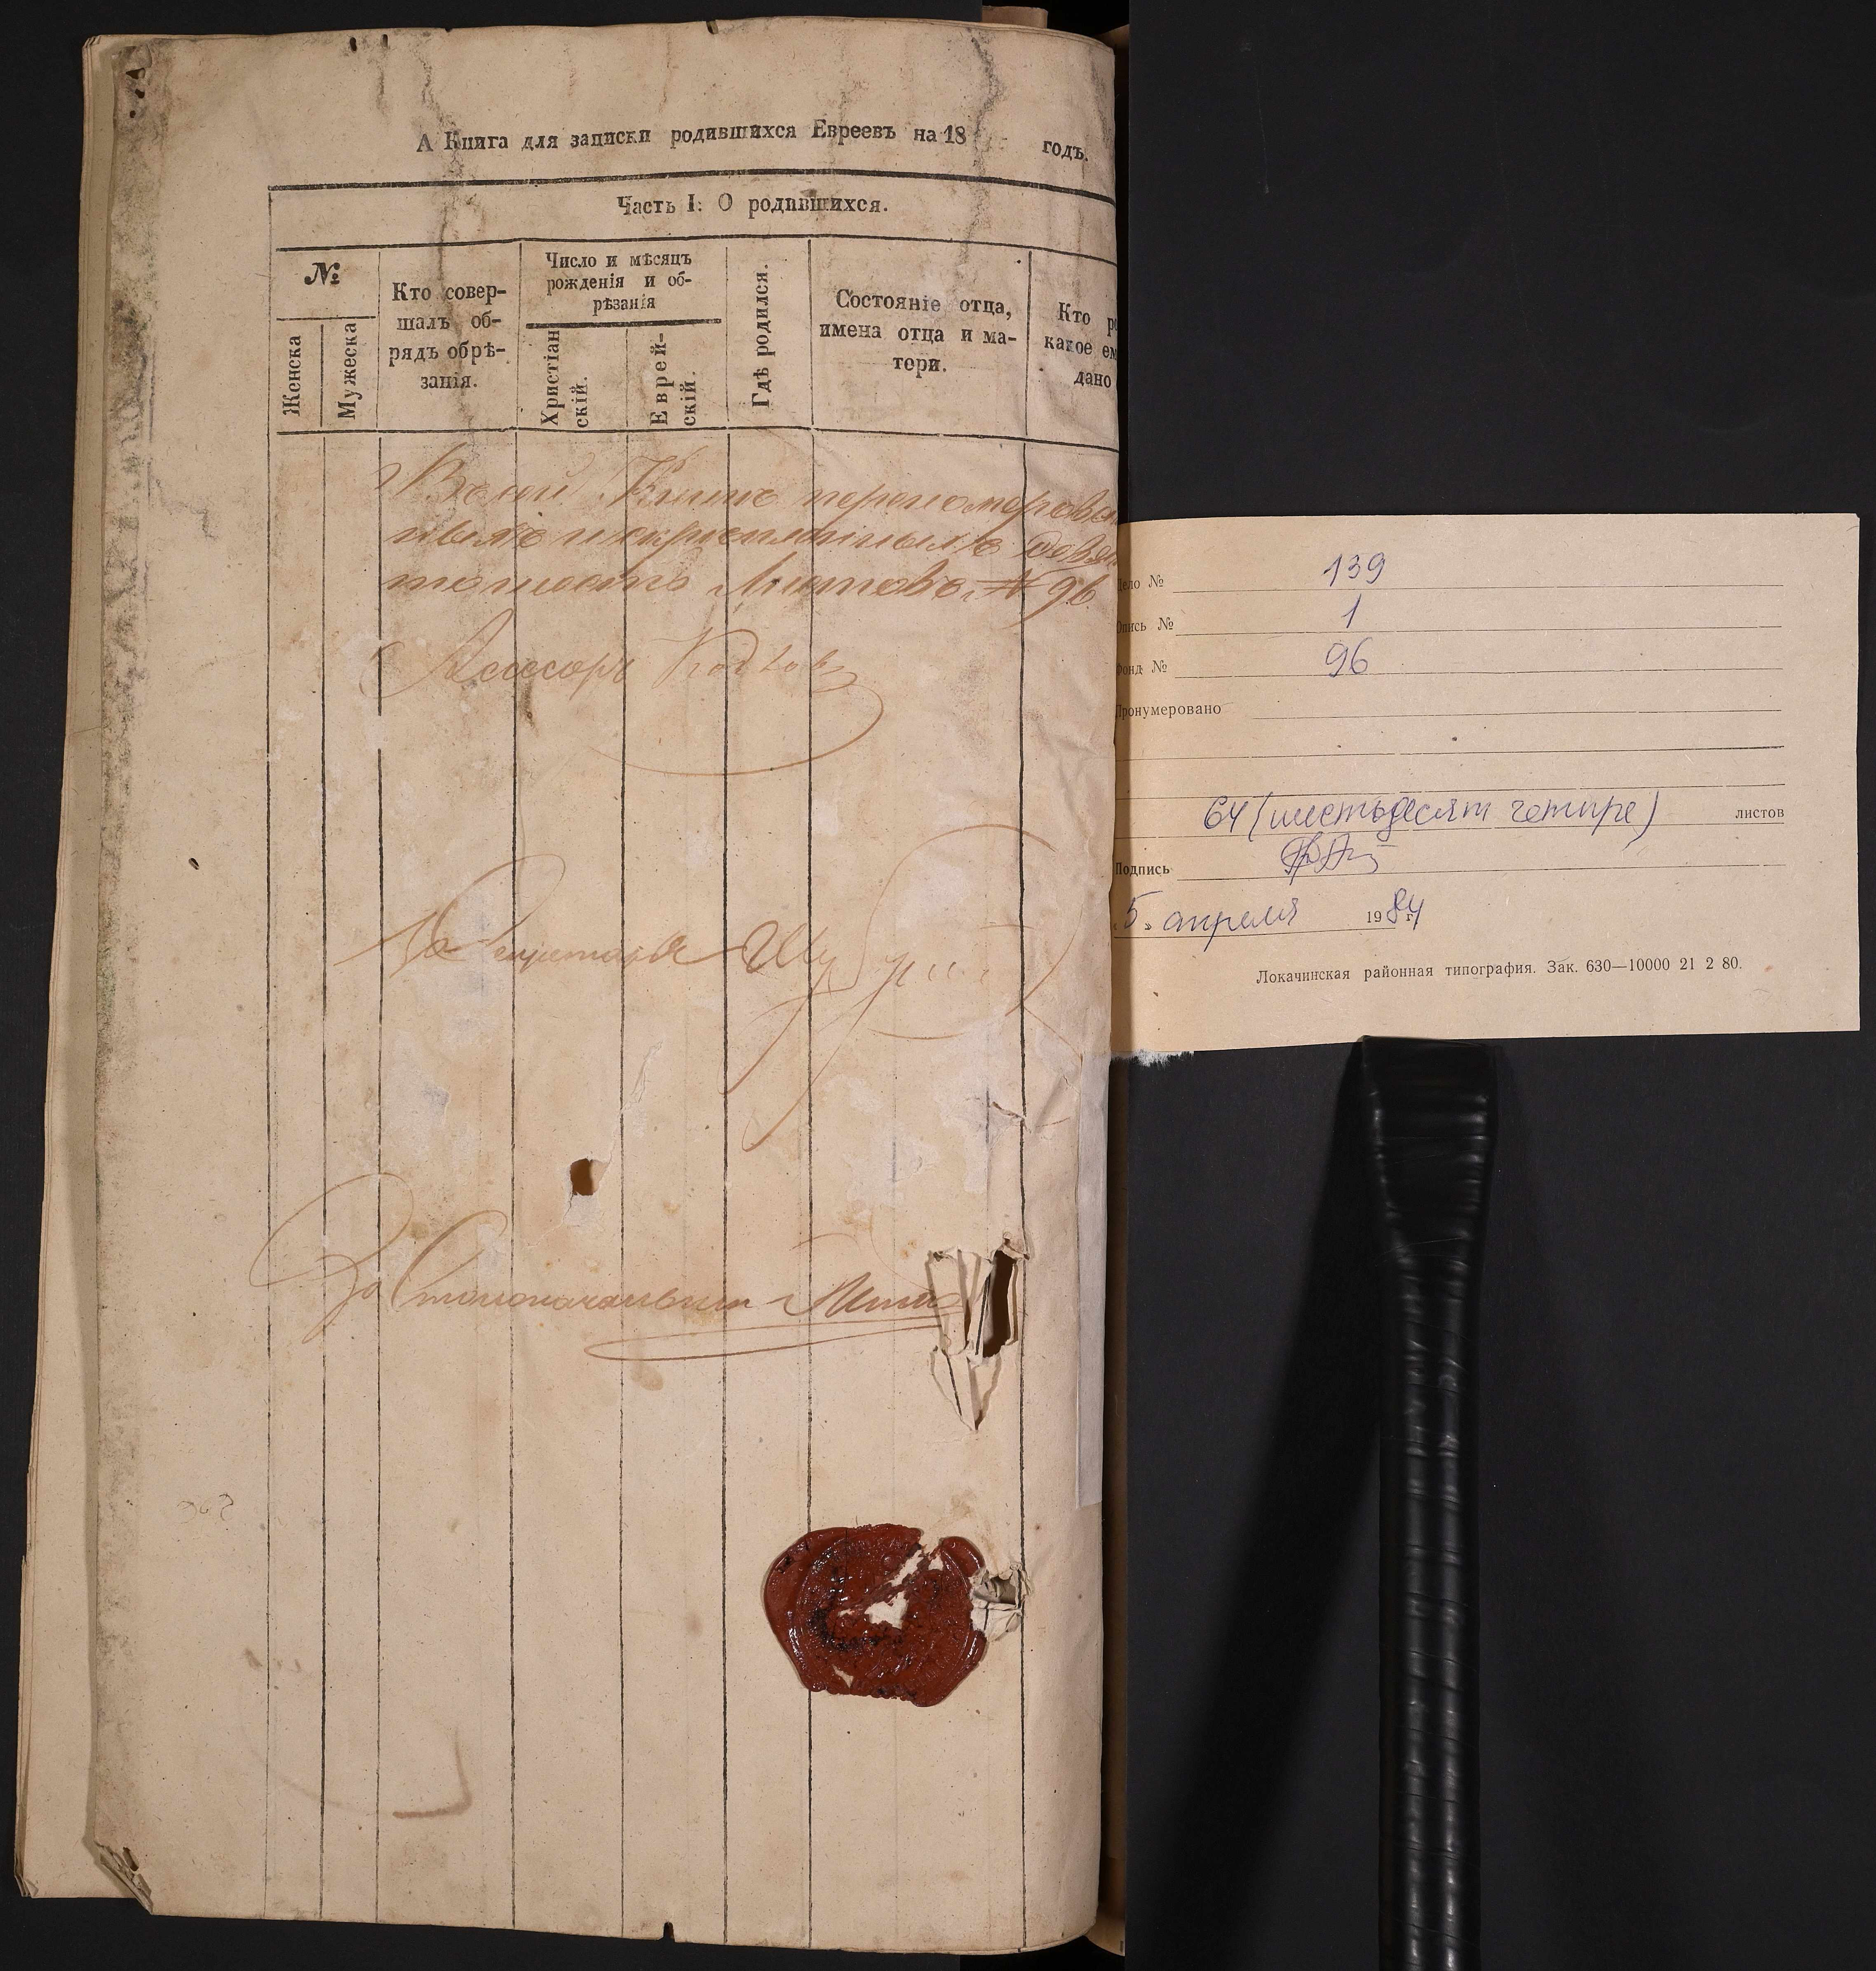 А Книга для записки родившихся Евреевъ на 18 годъ.
Часть I: О родившихся.
№
Женска
Мужеска
Кто совер-
шалъ об-
рядъ обрѣ-
занія.
Число и мѣсяцъ
рожденія и об-
рѣзанія
Христіан
скій.
Еврей-
скій.
Гдѣ родился.
Состояніе отца,
имена отца и ма-
тери.
Кто
какое
дано
Въ сей Книгѣ перономерован
ныхъ и скрепленныхъ девян
то шесть Листовъ. № 96.
Асессоръ
За Секретаря
За Столоначальника
Дело № 139
Опись № 1
Фонд № 96
Пронумеровано
64 (шестьдесят четыре) листов
Подпись
5 » апреля 1984 г.
Локачинская районная типография. Зак. 630—10000 21 2 80.